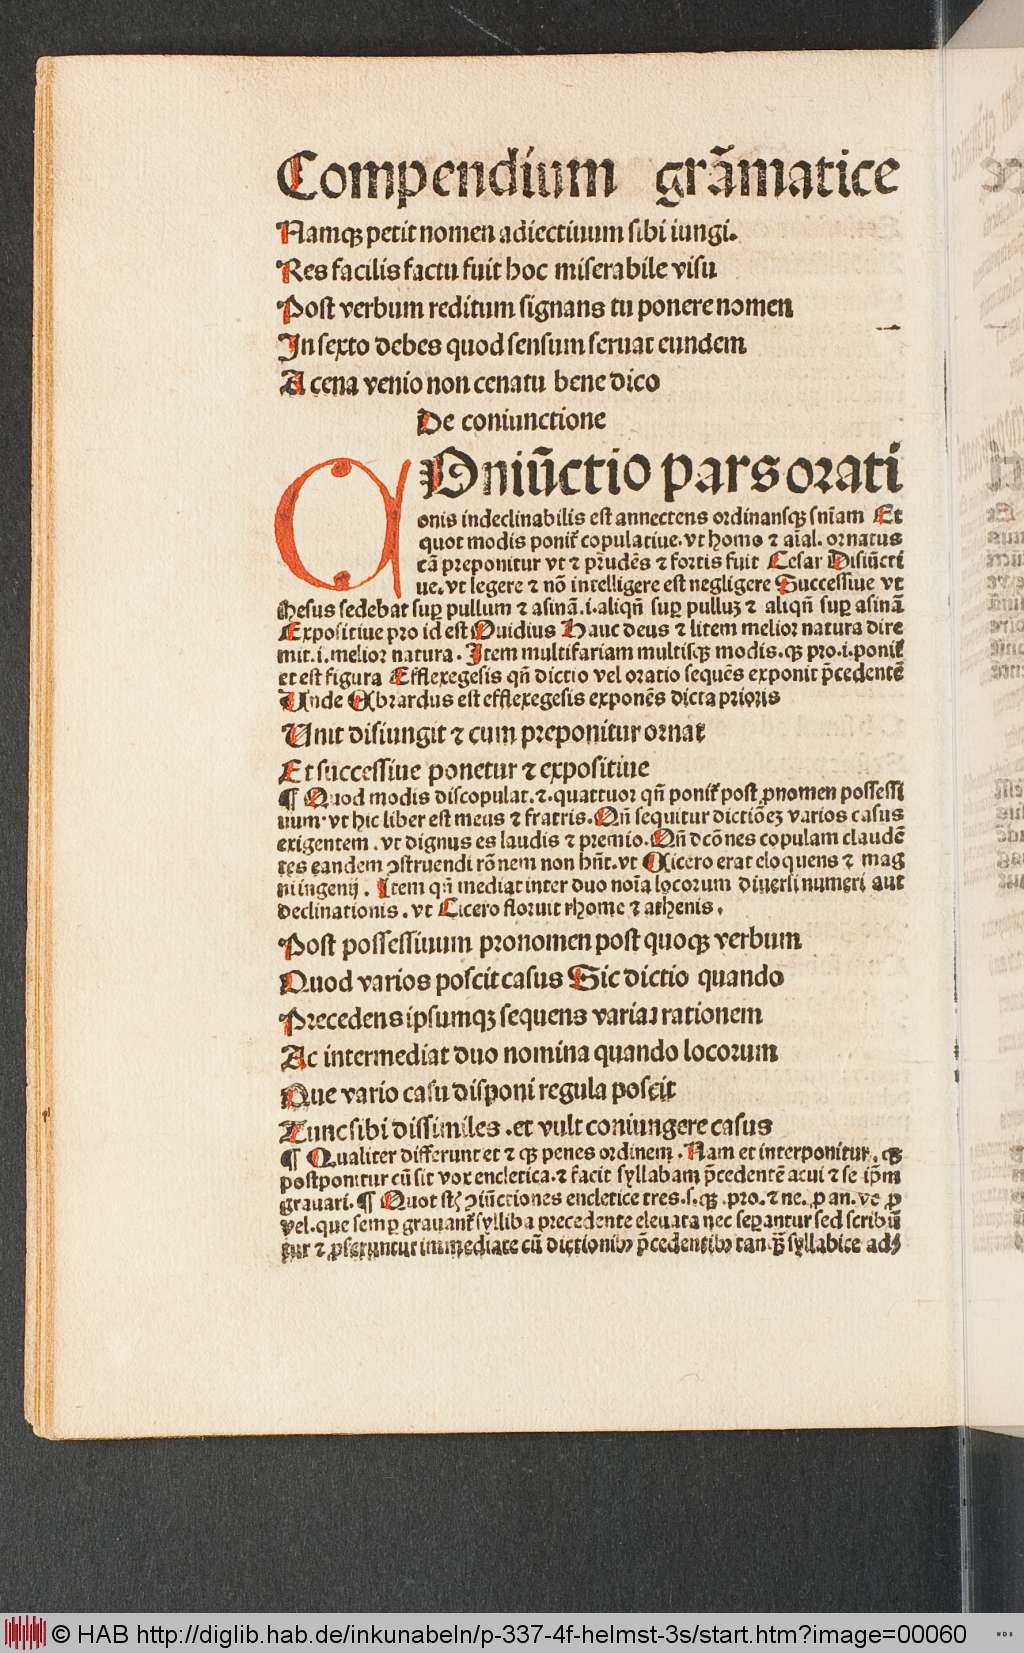 Compendium grãmatice
Namqꝫ petit nomen adiectiuum sibi iungi.
Res facilis factu fuit hoc miserabile visu
Post verbum reditum signans tu ponere nomen
In sexto debes quod sensum seruat eundem
A cena venio non cenatu bene dico
De coniunctione
COniũctio pars orati
onis indeclinabilis est annectens ordinansqꝫ sñiam Et
quot modis poniť copulatiue. vt homo ⁊ aĩal. ornatus
cã preponitur vt ⁊ prudẽs ⁊ fortis fuit Cesar Disiũcti
ue. vt legere ⁊ nõ intelligere est negligere Successiue vt
Ihesus sedebat suꝑ pullum ⁊ asinã .i. aliqñ suꝑ pulluꝫ ⁊ aliqñ suꝑ asinã
Expositiue pro id est Ouidius Hauc deus ⁊ litem melior natura dire
mit .i. melior natura. Item multifariam multisqꝫ modis. qꝫ pro .i. poniť
et est figura Efflexegesis qñ dictio vel oratio sequẽs exponit p̃cedentẽ
Unde Ebrardus est efflexegesis exponẽs dicta prioris
Unit disiungit ⁊ cum preponitur ornat
Et successiue ponetur ⁊ expositiue
¶ Quod modis discopulat. ⁊. quattuor qñ poniť post ꝓnomen possessi
uum. vt hic liber est meus ⁊ fratris. Qñ sequitur dictiõeꝫ varios casus
exigentem. vt dignus es laudis ⁊ premio. Qñ dcõnes copulam claudẽ
tes eandem ꝯstruendi rõnem non hñt. vt Cicero erat eloquens ⁊ mag
ni ingenij. Item qñ mediat inter duo noĩa locorum diuersi numeri aut
declinationis. vt Cicero floruit rhome ⁊ athenis.
Post possessiuum pronomen post quoqꝫ verbum
Quod varios poscit casus Sic dictio quando
Precedens ipsumqꝫ sequens variat rationem
Ac intermediat duo nomina quando locorum
Que vario casu disponi regula poscit
Tunc sibi dissimiles. et vult coniungere casus
¶ Qualiter differunt et ⁊ qꝫ penes ordinem. Nam et interponitur. qꝫ
postponitur cũ sit vox encletica. ⁊ facit syllabam p̃cedentẽ acui ⁊ se ip̃m
grauari. ¶ Quot st̃ ꝯiũctiones encletice tres .s. qꝫ. pro. ⁊ ne. ꝓ an. ve ꝓ
vel. que semꝑ grauanť sylliba precedente eleuata nec seꝑantur sed scribũ
tur ⁊ ꝓferuntur immediate cũ dictionibꝫ p̃cedentibꝫ tanqꝫ̃ syllabice adi
© HAB http://diglib.hab.de/inkunabeln/p-337-4f-helmst-3s/start.htm?image=00060